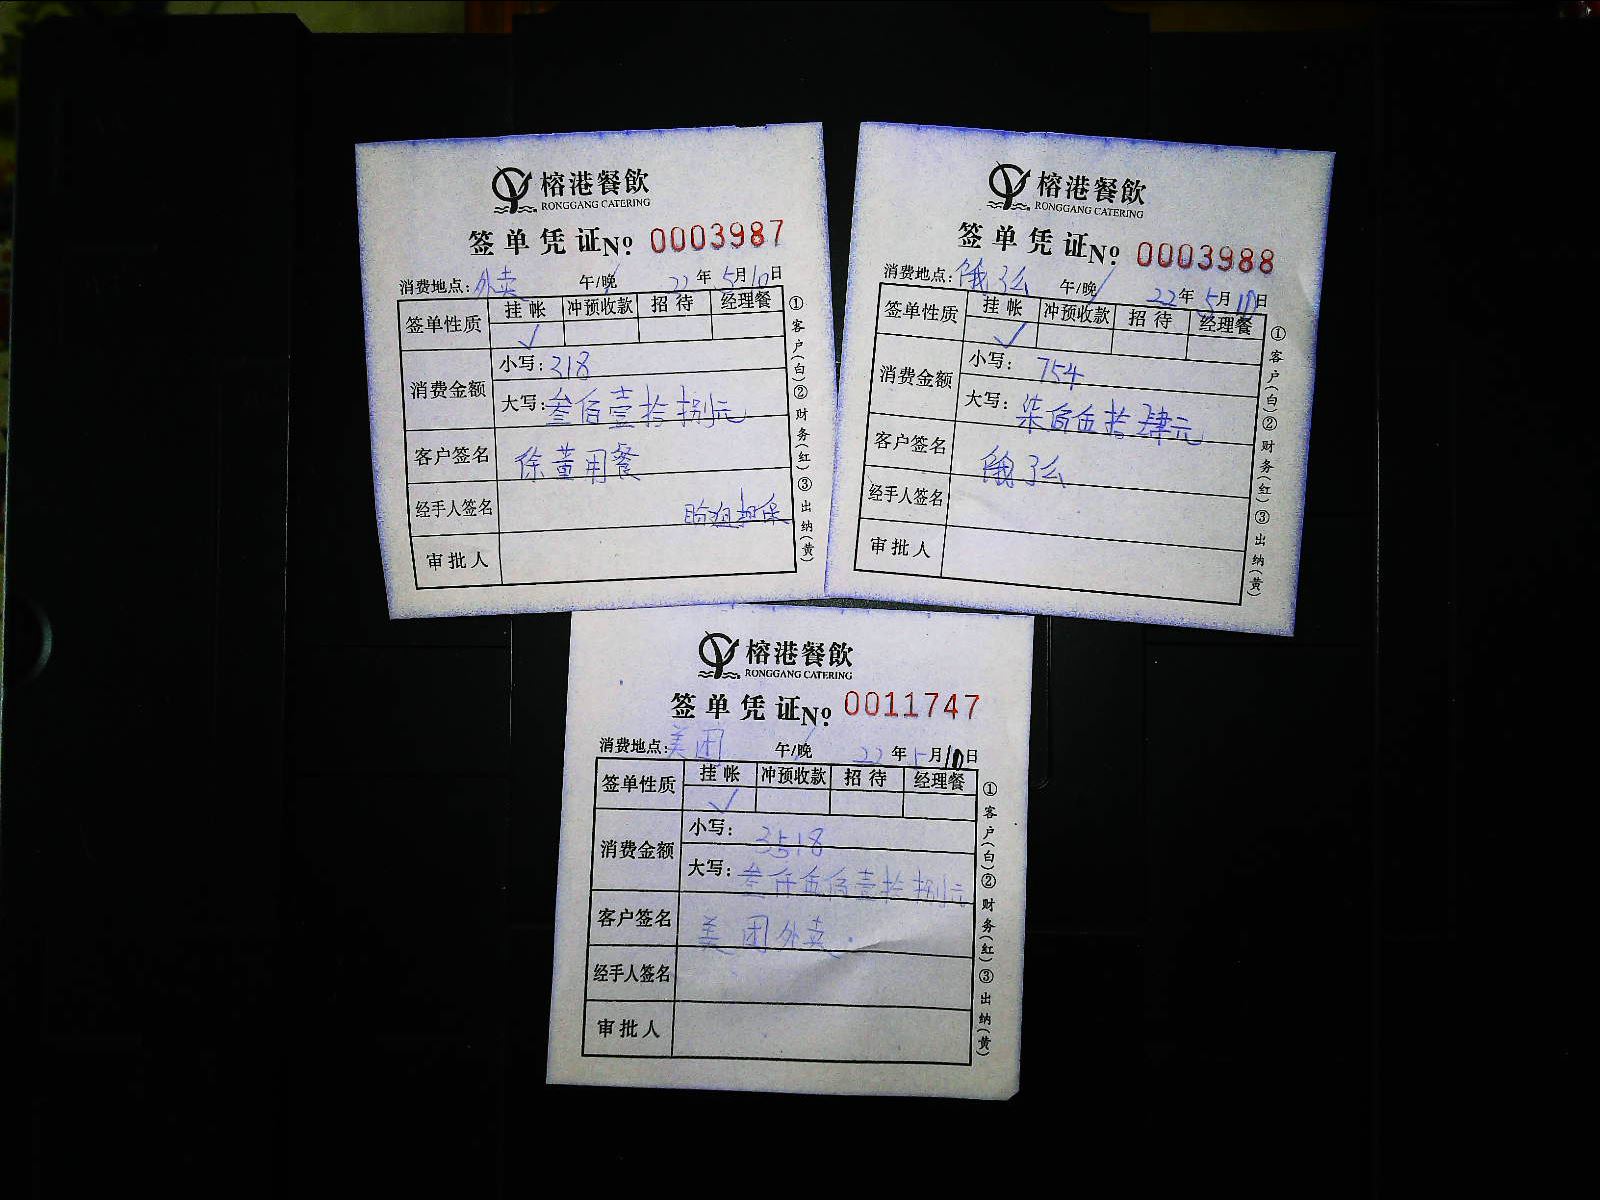 榕港餐飲
RONGGANG CATERING
签单凭证№ 0003987
消费地点: 外卖 午/晚 22年5月10日
签单性质 挂帐 冲预收款 招待 经理餐
√
消费金额 小写: 318
大写: 叁佰壹拾捌元
客户签名 徐董用餐
经手人签名
审批人
①客户(白)②财务(红)③出纳(黄)
榕港餐飲
RONGGANG CATERING
签单凭证№ 0003988
消费地点: 饿了么 午/晚 22年5月10日
签单性质 挂帐 冲预收款 招待 经理餐
√
消费金额 小写: 754
大写: 柒佰伍拾肆元
客户签名 饿了么
经手人签名
审批人
①客户(白)②财务(红)③出纳(黄)
榕港餐飲
RONGGANG CATERING
签单凭证№ 0011747
消费地点: 美团 午/晚 22年5月10日
签单性质 挂帐 冲预收款 招待 经理餐
√
消费金额 小写: 3518
大写: 叁仟伍佰壹拾捌元
客户签名 美团外卖
经手人签名
审批人
①客户(白)②财务(红)③出纳(黄)